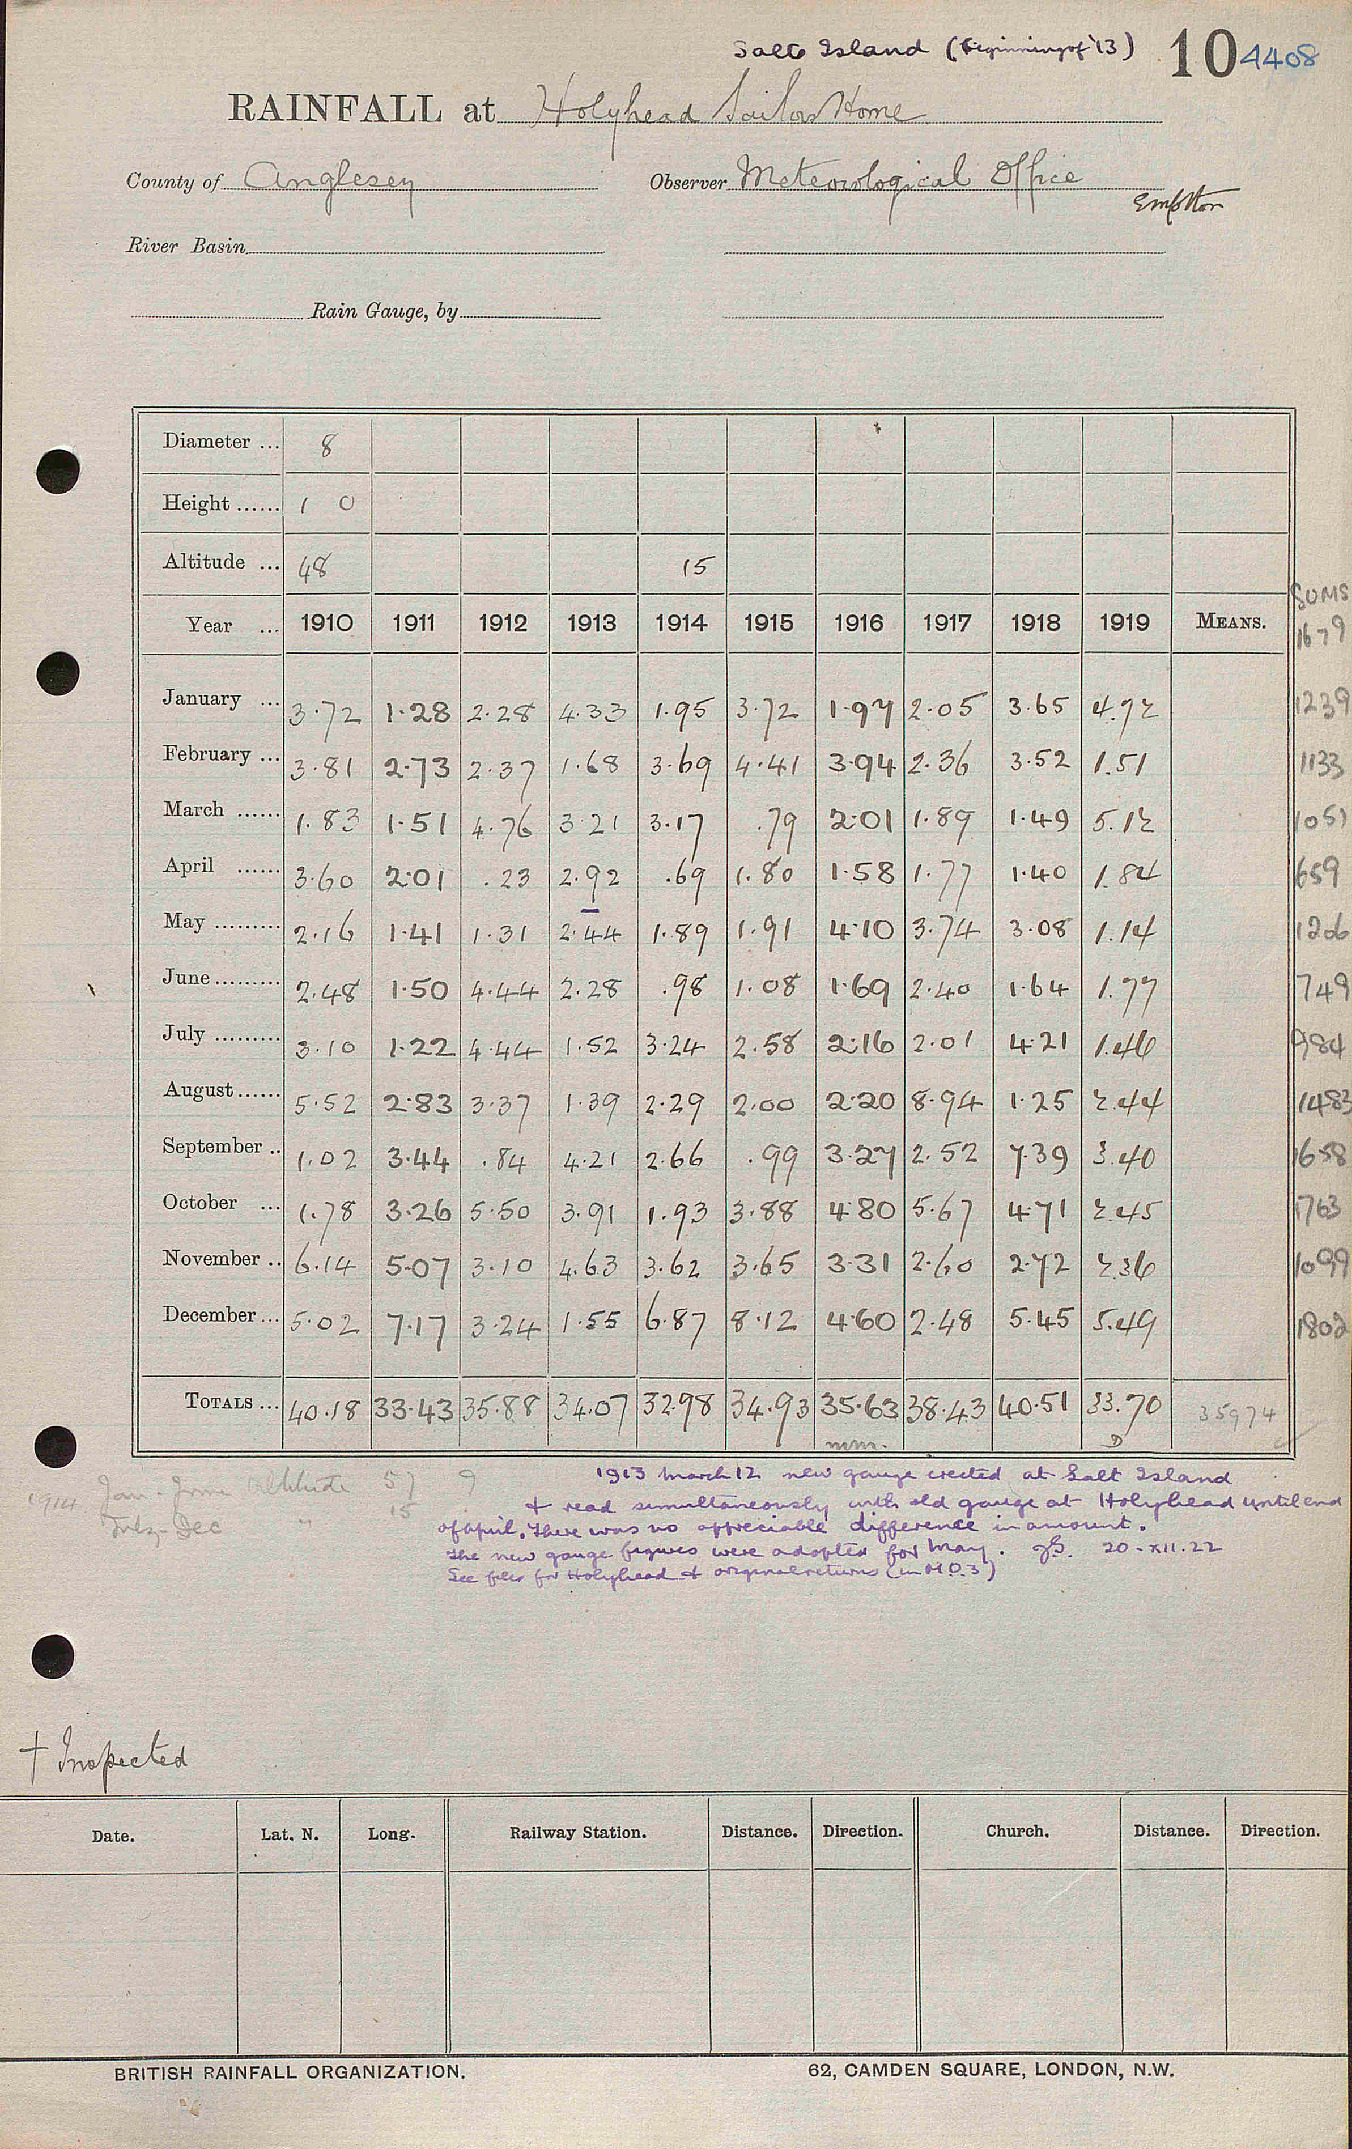 Salt Island (Beginning of '13) 10 4408
RAINFALL at Holyhead Sailors Home
County of Anglesey Observer Meteorological Office
River Basin
Rain Gauge, by
Diameter ... 8
Height ...... 1 0
Altitude ... 48 15
SUMS
Year ... 1910 1911 1912 1913 1914 1915 1916 1917 1918 1919 MEANS. 1679
January ... 3.72 1.28 2.28 4.33 1.95 3.72 1.97 2.05 3.65 4.72 1239
February ... 3.81 2.73 2.37 1.68 3.69 4.41 3.94 2.36 3.52 1.51 1133
March ...... 1.83 1.51 4.76 3.21 3.17 .79 2.01 1.89 1.49 5.12 1051
April ...... 3.60 2.01 .23 2.92 .69 1.80 1.58 1.77 1.40 1.84 659
May ......... 2.16 1.41 1.31 2.44 1.89 1.91 4.10 3.74 3.08 1.14 1206
June ......... 2.48 1.50 4.44 2.28 .98 1.08 1.69 2.40 1.64 1.77 749
July ......... 3.10 1.22 4.44 1.52 3.24 2.58 2.16 2.01 4.21 1.46 984
August ...... 5.52 2.83 3.37 1.39 2.29 2.00 2.20 8.94 1.25 2.44 1483
September .. 1.02 3.44 .84 4.21 2.66 .99 3.27 2.52 7.39 3.40 1658
October ... 1.78 3.26 5.50 3.91 1.93 3.88 4.80 5.67 4.71 2.45 1763
November .. 6.14 5.07 3.10 4.63 3.62 3.65 3.31 2.60 2.72 2.36 1099
December ... 5.02 7.17 3.24 1.55 6.87 8.12 4.60 2.48 5.45 5.49 1802
TOTALS ... 40.18 33.43 35.88 34.07 32.98 34.93 35.63 38.43 40.51 33.70 35974
mm. D
1914 Jan - June Altitude 57 ?
July - Dec " 15
1913 March 12 new gauge erected at Salt Island
& read simultaneously with old gauge at Holyhead until end
of april. There was no appreciable difference in amount.
The new gauge figures were adopted for May. 20.XII.22
See files for Holyhead & original returns (in M.O.3)
† Inspected
Date. Lat. N. Long. Railway Station. Distance. Direction. Church. Distance. Direction.
BRITISH RAINFALL ORGANIZATION. 62, CAMDEN SQUARE, LONDON, N.W.